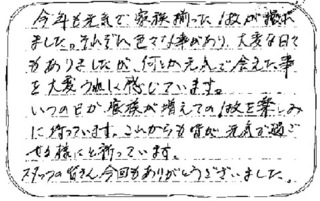 今年も元気で家族揃った1枚が撮れ
ました。それぞれ色々な事があり、大変な日々
もありましたが、何とか元気で会えた事
を大変うれしく感じています。
いつの日か家族が増えての1枚を楽しみ
に待っています。これからも皆が元気で過ご
せる様にと祈っています。
スタッフの皆さん、今回もありがとうございました。